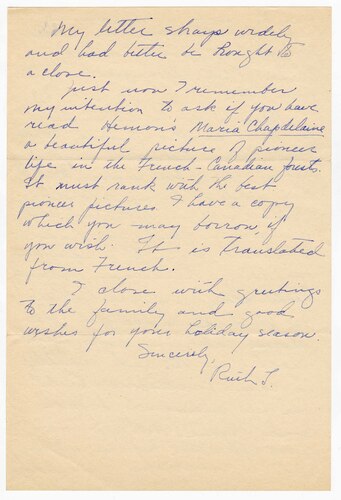 My letter strays widely
and had better be brought to
a close.
Just now I remember
my intention to ask if you have
read Hemon's Maria Chapdelaine
a beautiful picture of pioneer
life in the French-Canadian forests.
It must rank with the best
pioneer pictures. I have a copy
which you may borrow, if
you wish. It is translated
from French.
I close with greetings
to the family and good
wishes for your holiday season.
Sincerely,
Ruth L.